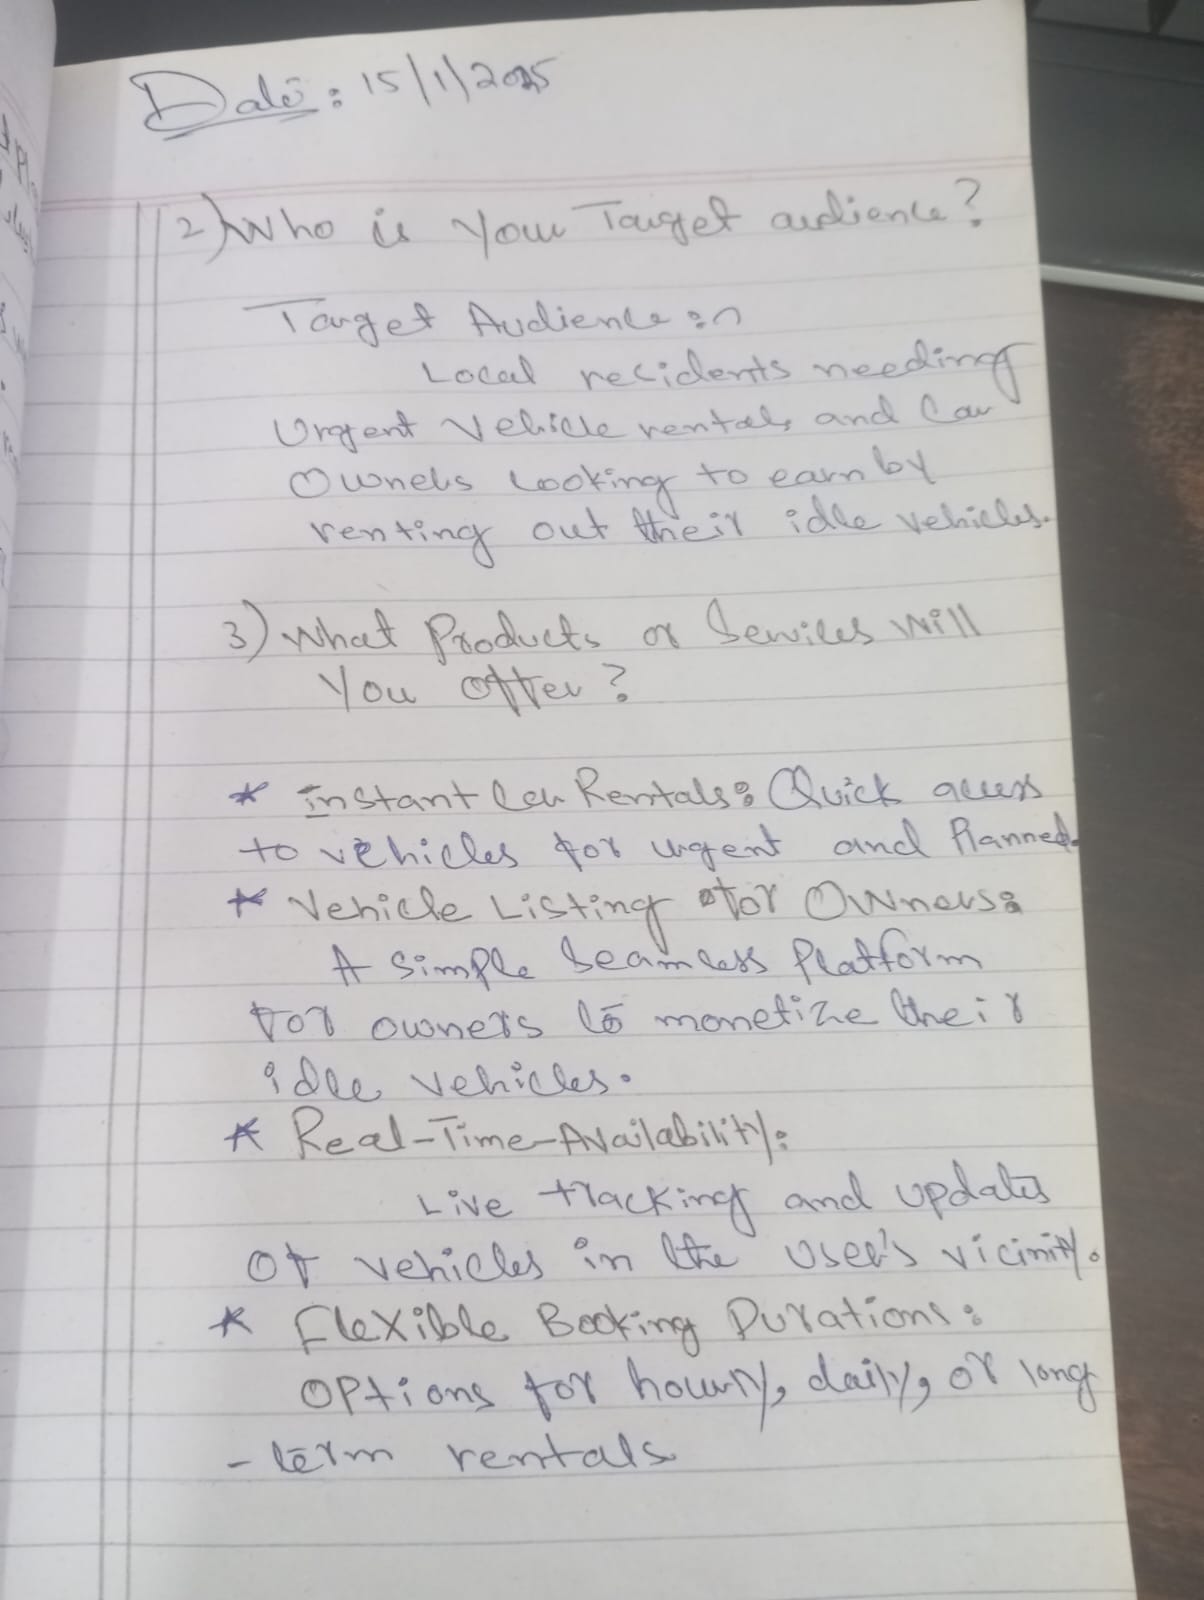 Date: 15/1/2025
2) Who is your Target audience?
Target Audience:
Local residents needing
Urgent vehicle rentals and Car
Owners looking to earn by
renting out their idle vehicles.
3) What Products or Services Will
You offer?
* instant Car Rentals: Quick access
to vehicles for urgent and Planned.
* Vehicle Listing for Owners:
A simple seamless Platform
for owners to monetize their
idle vehicles.
* Real-Time-Availability:
Live tracking and updates
of vehicles in the user's vicinity.
* Flexible Booking Durations:
Options for hourly, daily, or long
-term rentals